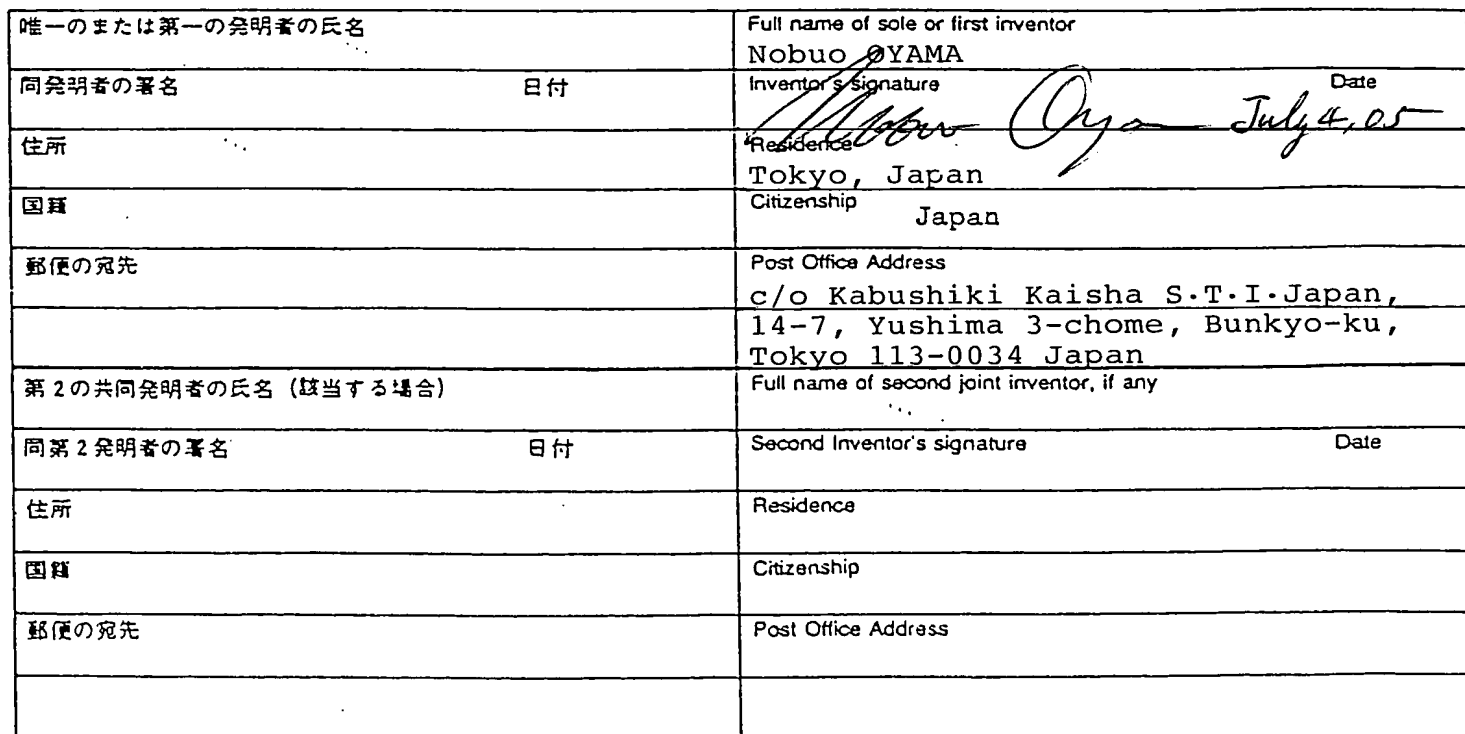 唯一のまたは第一の発明者の氏名
Full name of sole or first inventor
Nobuo OYAMA
同発明者の署名 日付
Inventor's signature Date
Nobuo Oyama July 4, 05
住所
Residence
Tokyo, Japan
国籍
Citizenship Japan
郵便の宛先
Post Office Address
c/o Kabushiki Kaisha S·T·I·Japan,
14-7, Yushima 3-chome, Bunkyo-ku,
Tokyo 113-0034 Japan
第2の共同発明者の氏名 (該当する場合)
Full name of second joint inventor, if any
同第2発明者の署名 日付
Second Inventor's signature Date
住所
Residence
国籍
Citizenship
郵便の宛先
Post Office Address